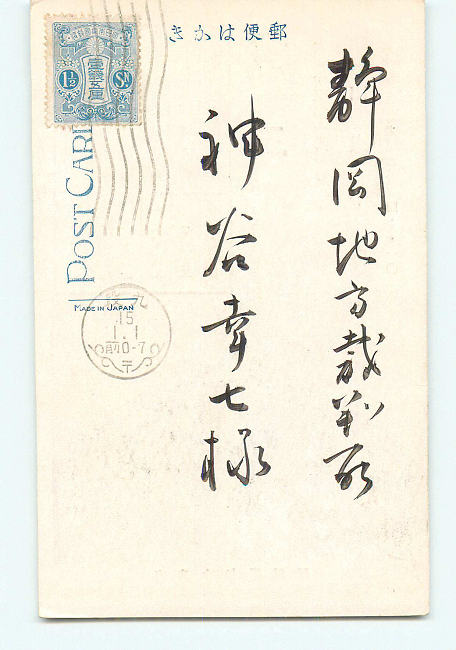 郵便はかき
静岡地方裁判所
神谷幸七様
壹銭五厘
1½ Sn
POST CARD
MADE IN JAPAN
15
1.1
前0-7